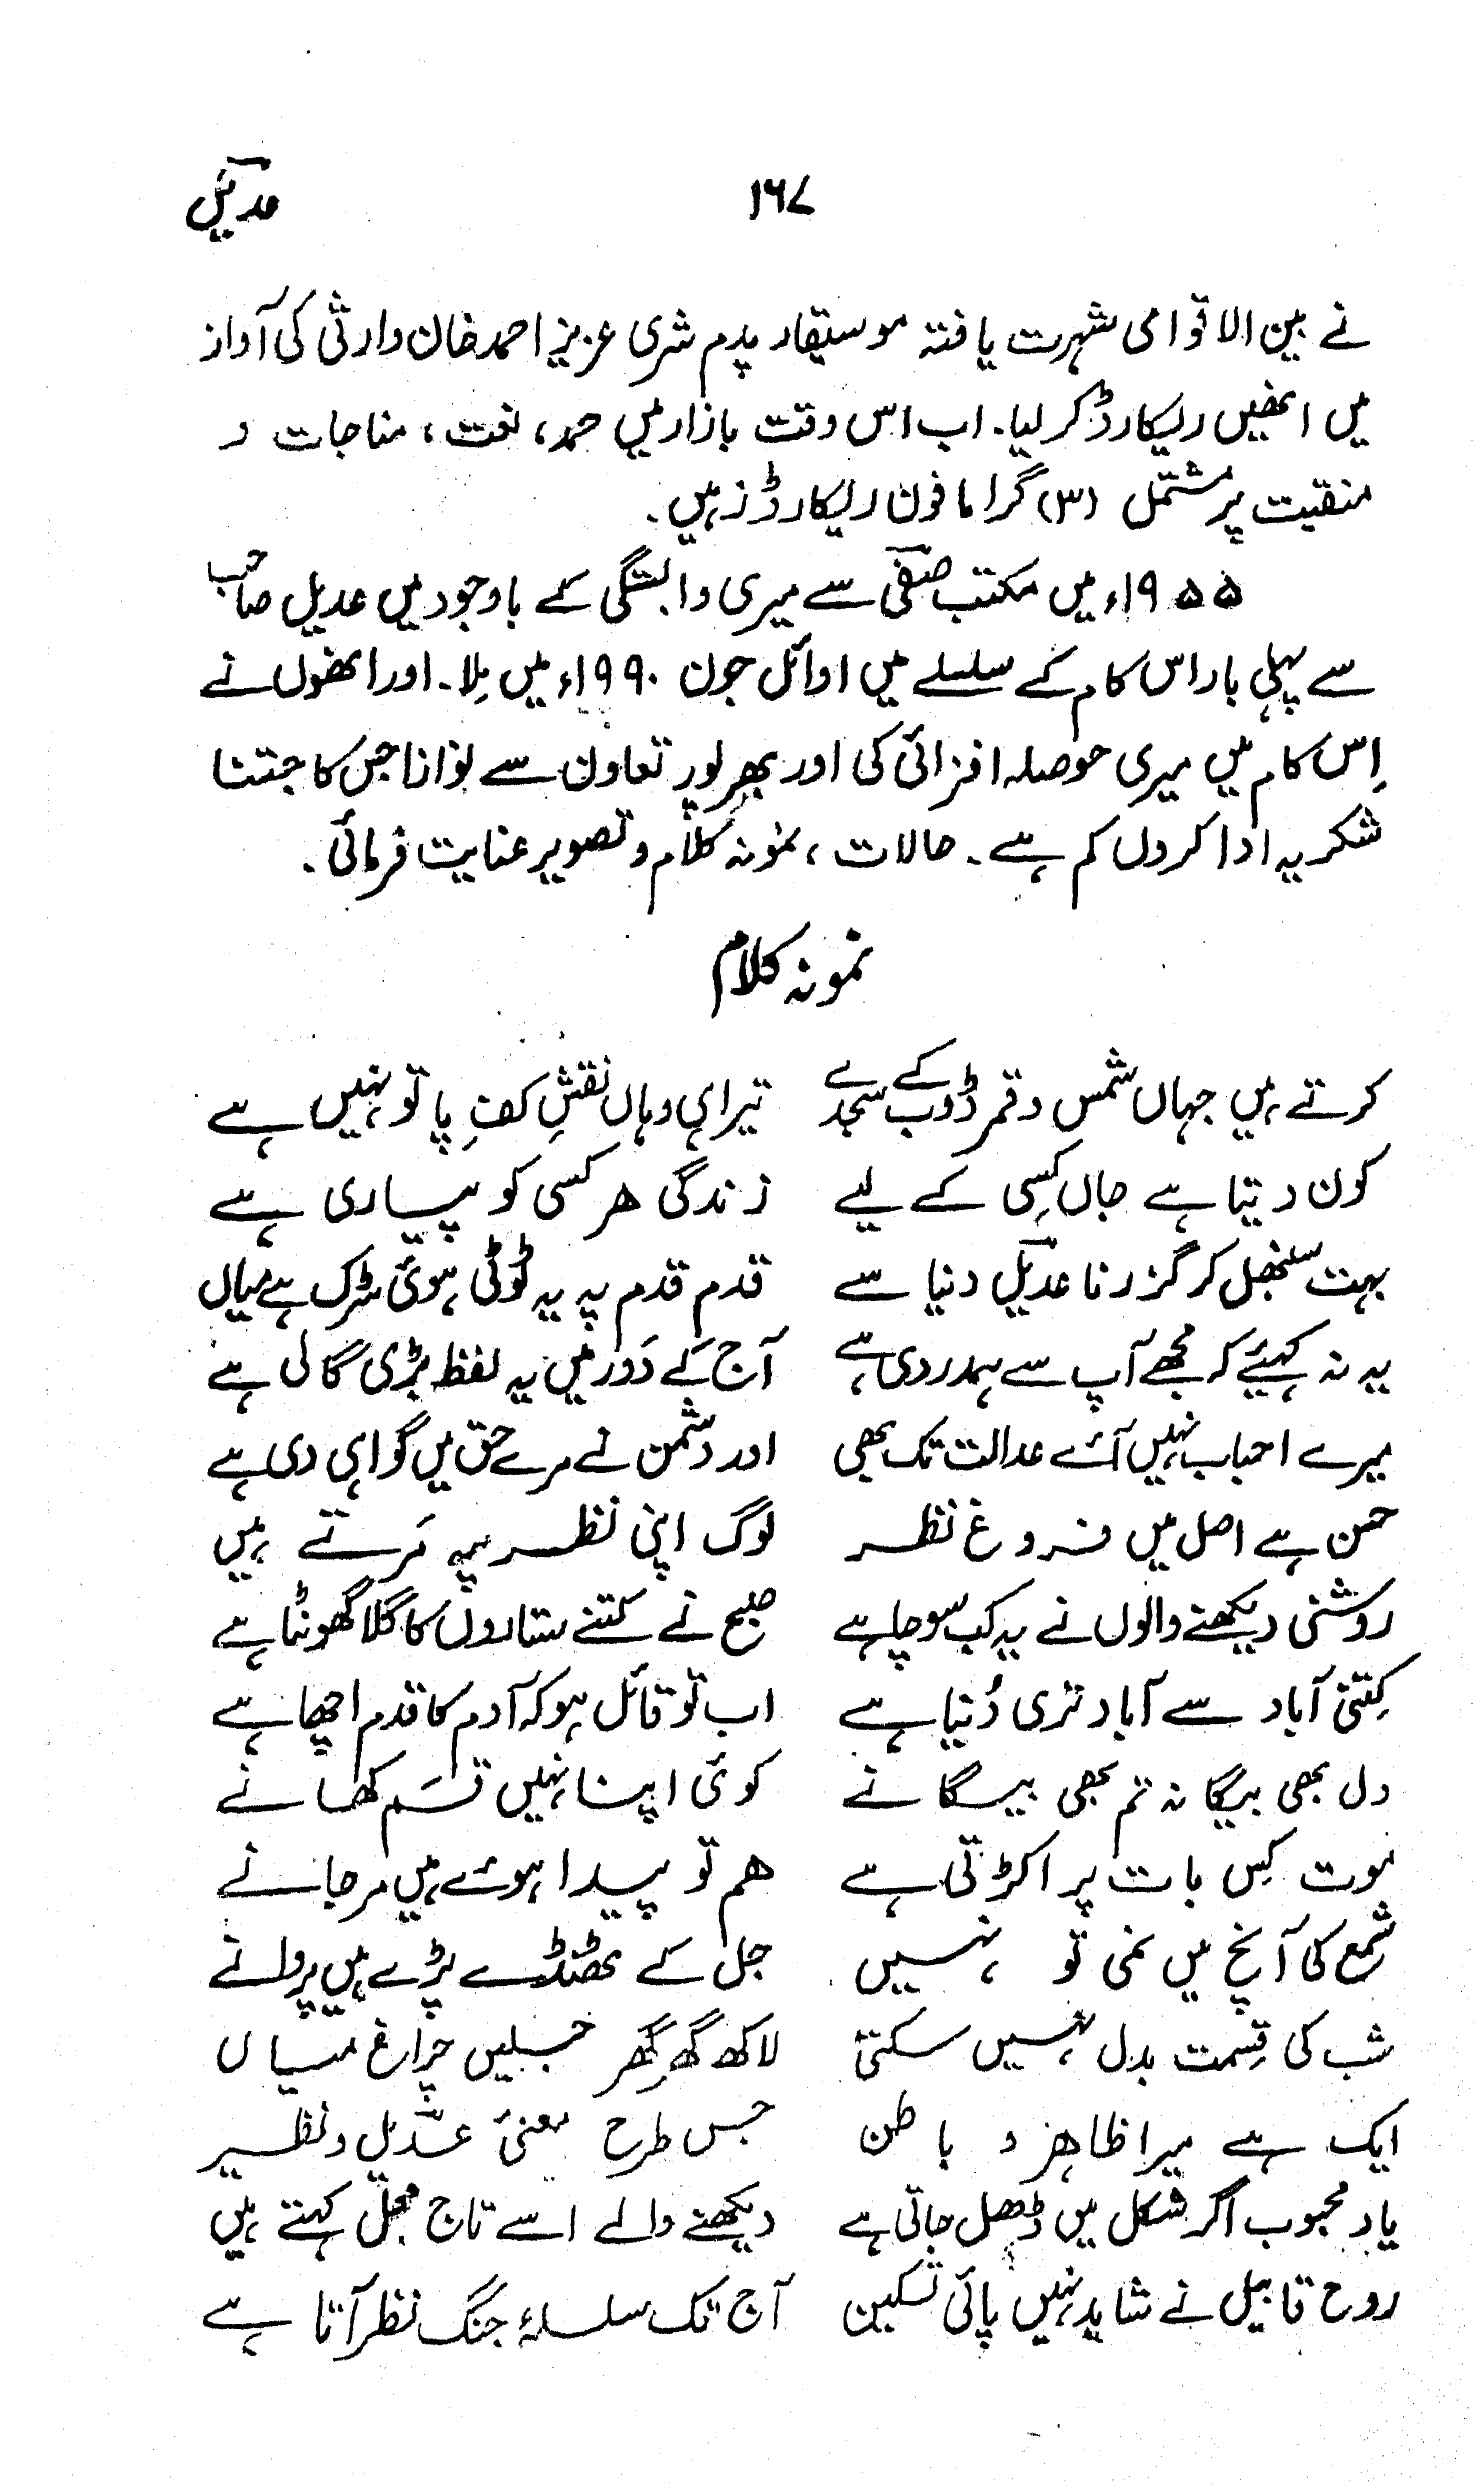 ۱۶۷ عدیلؔ
نے بین الاقوامی شہرت یافتہ موسیقار پدم شری عزیز احمد خان وارثی کی آواز
میں انھیں ریکارڈ کر لیا۔ اب اس وقت بازار میں حمد، نعت، مناجات و
منقبت پر مشتمل (۳) گراما فون ریکارڈز ہیں۔
۱۹۵۵ء میں مکتب صفیؔ سے میری وابستگی کے باوجود میں عدیل صاحب
سے پہلی بار اس کام کے سلسلے میں اوائل جون ۱۹۹۰ء میں مِلا۔ اور انھوں نے
اِس کام میں میری حوصلہ افزائی کی اور بھرپور تعاون سے نوازا جس کا جتنا
شکریہ ادا کروں کم ہے۔ حالات، نمونہ کلام و تصویر عنایت فرمائی۔
نمونہ کلام
کرتے ہیں جہاں شمس و قمر ڈوب کے سجدے تیرا ہی وہاں نقشِ کفِ پا تو نہیں ہے
کون دیتا ہے جاں کسِی کے لیے زندگی ہر کسی کو پیاری ہے
بہت سنبھل کر گزرنا عدیلؔ دنیا سے قدم قدم پہ یہ ٹوٹی ہوئی سڑک ہے میاں
یہ نہ کہیئے کہ مجھے آپ سے ہمدردی ہے آج کے دَور میں یہ لفظ بڑی گالی ہے
میرے احباب نہیں آئے عدالت تک بھی اور دشمن نے مرے حق میں گواہی دی ہے
حسن ہے اصل میں فروغ نظر لوگ اپنی نظر پہ مَرتے ہیں
روشنی دیکھنے والوں نے یہ کب سوچا ہے صبح نے کتنے ستاروں کا گلا گھونٹا ہے
کِتنی آباد سے آباد تری دُنیا ہے اب تو قائل ہو کہ آدم کا قدم اچھا ہے
دل بھی بیگانہ تم بھی بیگانے کوئی اپنا نہیں قسَم کھانے
موت کِس بات پر اکڑتی ہے ہم تو پیدا ہوئے ہیں مرجانے
شمع کی آنچ میں نمی تو نہیں جل کے ٹھنڈے پڑے ہیں پروانے
شب کی قِسمت بدل نہیں سکتی لاکھ گھر گھر جلیں چراغ میاں
ایک ہے میرا ظاہر و باطن جس طرح معنیٔ عدیلؔ و نظیر
یاد محبوب اگر شکل میں ڈھل جاتی ہے دیکھنے والے اسے تاج محل کہتے ہیں
روح قابیل نے شاید نہیں پائی تسکین آج تک سلسلۂ جنگ نظر آتا ہے